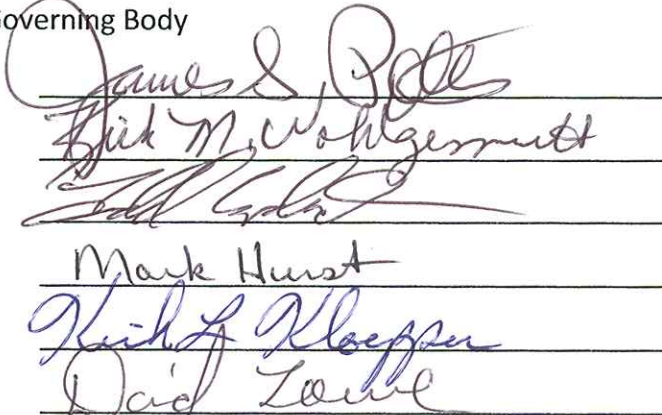 Governing Body
James S.
Kirk M. Wohlgemuth
Mark Hurst
Keith L. Kloepper
David Lowe